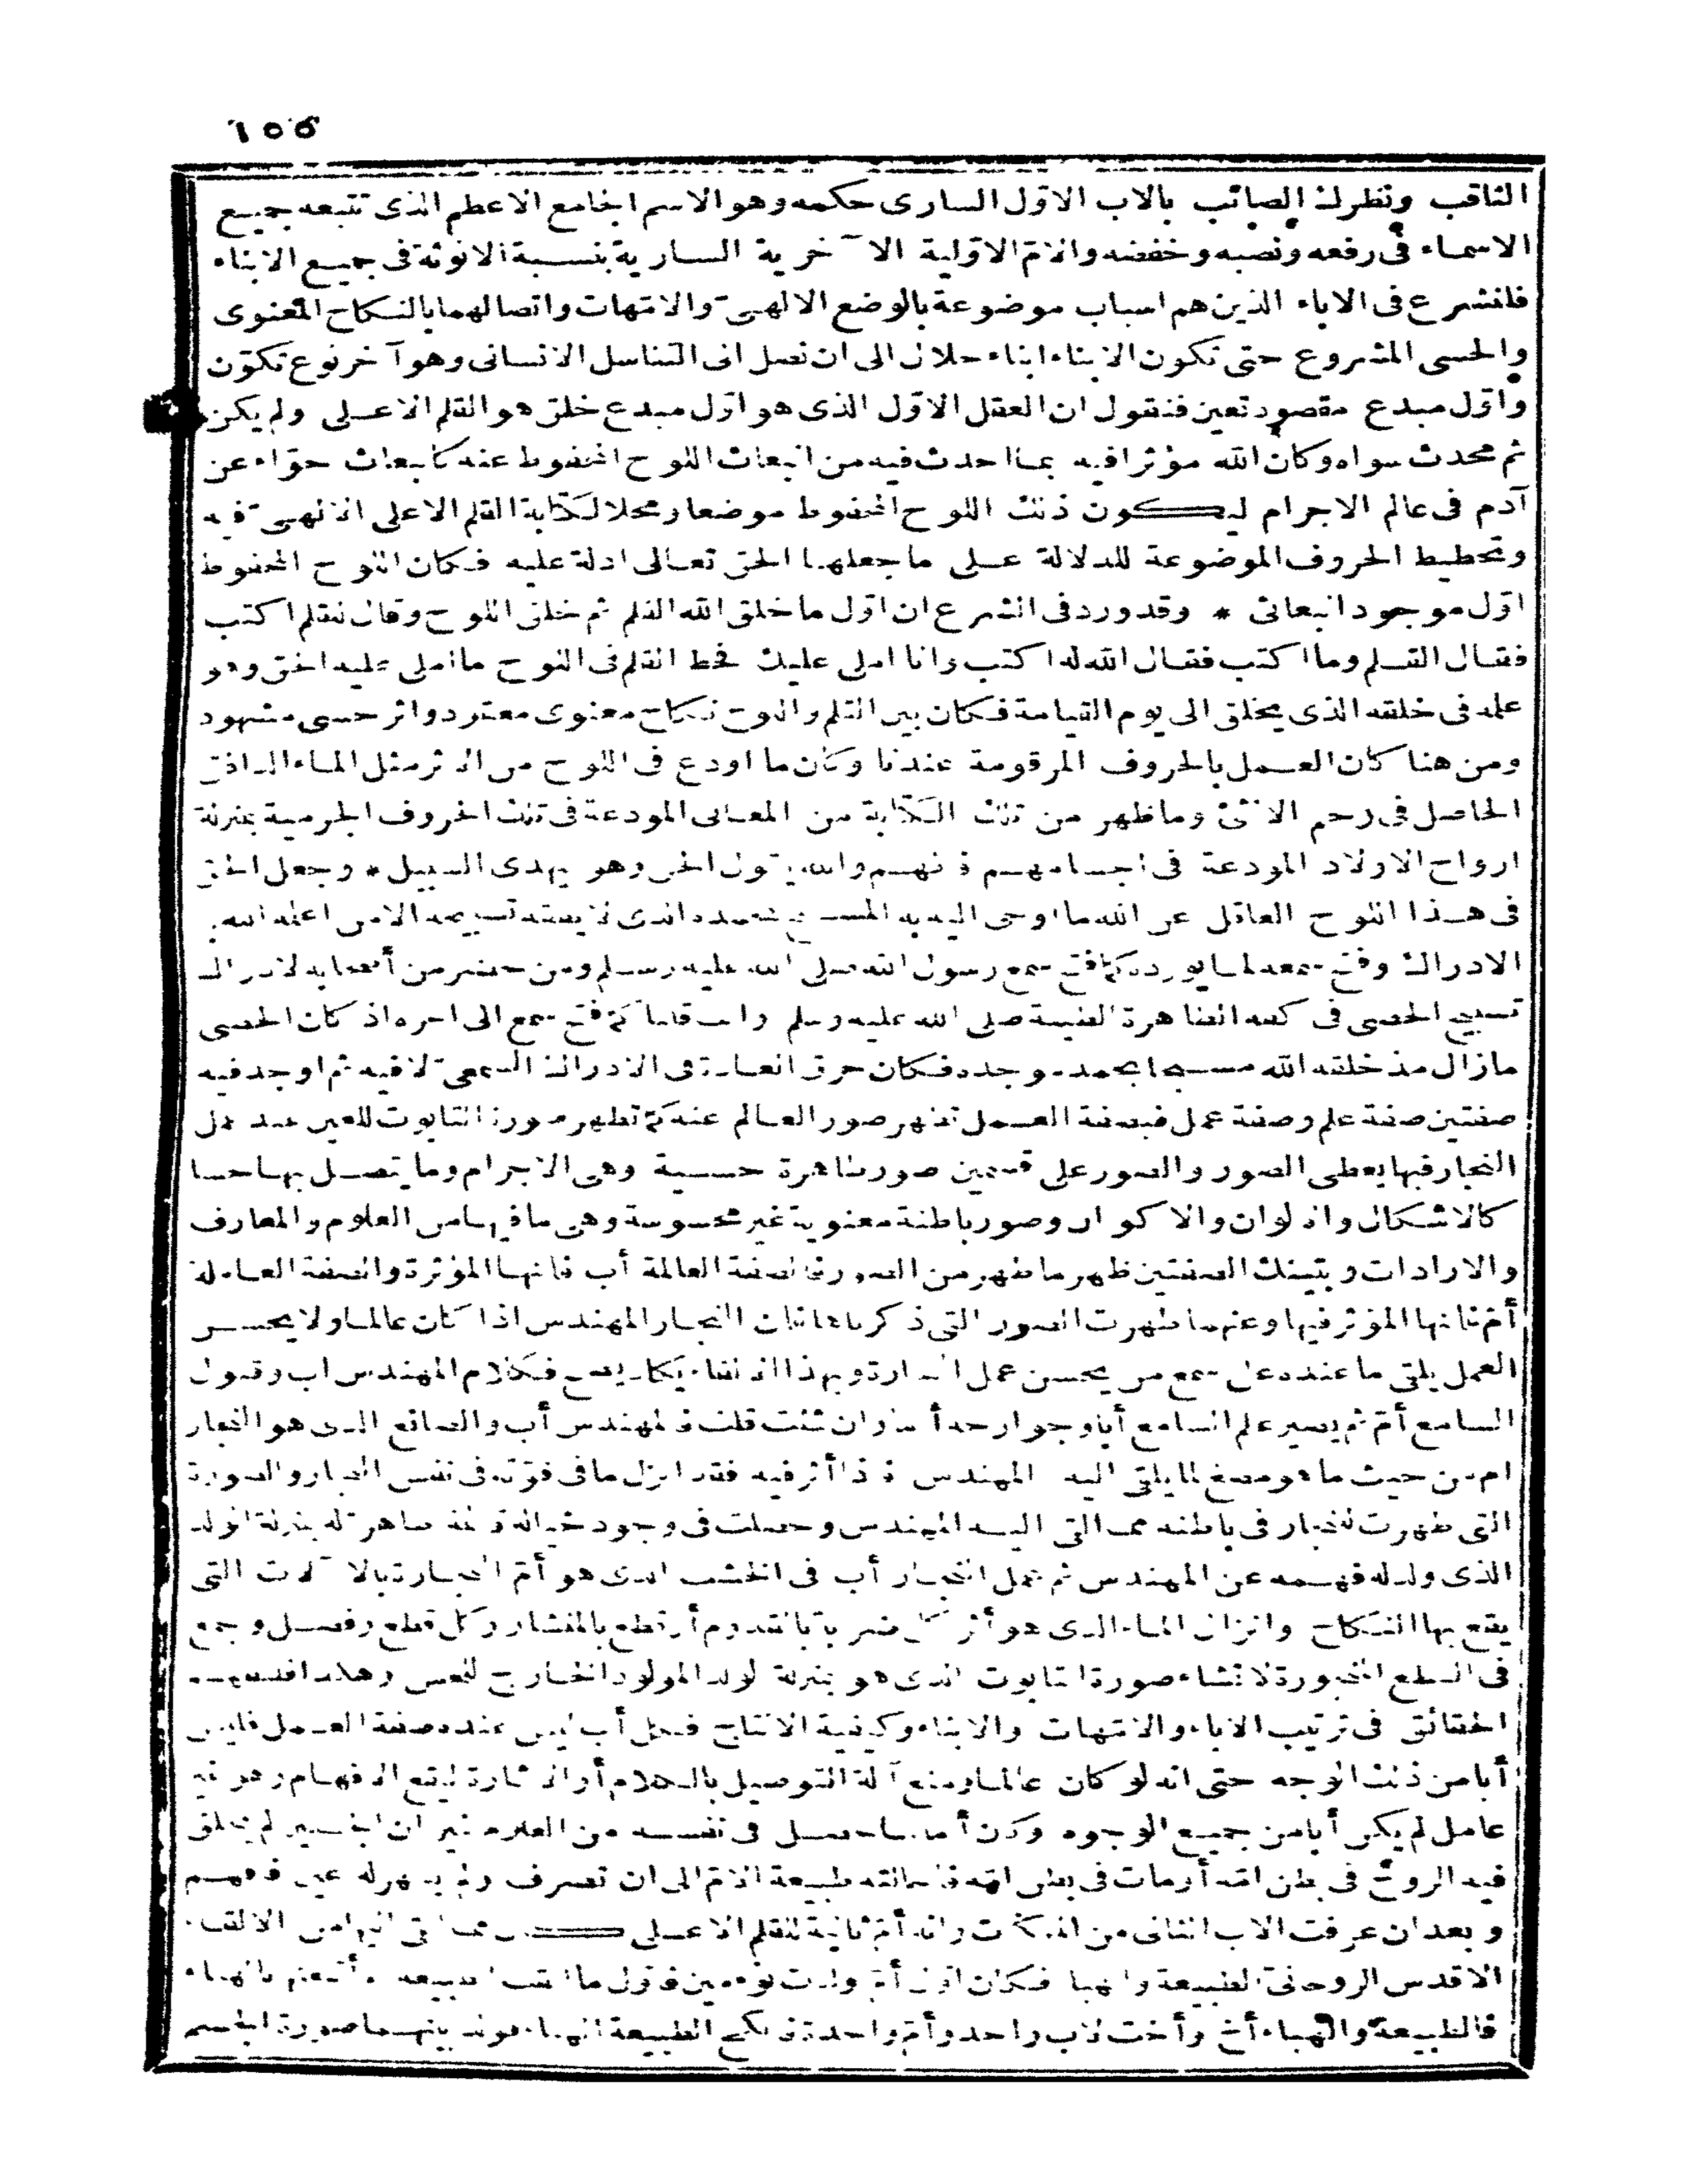 ١٥٥
الثاقب ونظرك الصائب بالاب الاول السارى حكمه وهو الاسم الجامع الاعظم الذى تتبعه جميع
الاسماء فى رفعه ونصبه وخفضه والام الاولية الآخرية السارية بنسبة الانوثة فى جميع الابناء
فلنشرع فى الاباء الذين هم اسباب موضوعة بالوضع الالهى والامهات واتصالهما بالنكاح المعنوى
والحسى المشروع حتى تكون الابناء ابناء حلال الى ان نصل الى التناسل الانسانى وهو آخر نوع تكون
واول مبدع مقصود تعين فنقول ان العقل الاول الذى هو اول مبدع خلق هو القلم الاعلى ولم يكن
ثم محدث سواه وكان الله مؤثرا فيه بما احدث فيه من انبعاث اللوح المحفوظ عنه كانبعاث حواء عن
آدم فى عالم الاجرام ليكون ذلك اللوح المحفوظ موضعا ومحلا لكتابة القلم الاعلى الالهى فيه
وتخطيط الحروف الموضوعة للدلالة على ما جعلها الحق تعالى ادلة عليه فكان اللوح المحفوظ
اول موجود انبعاثى * وقد ورد فى الشرع ان اول ما خلق الله القلم ثم خلق اللوح وقال للقلم اكتب
فقال القلم وما اكتب فقال الله له اكتب وانا املى عليك فخط القلم فى اللوح ما املى عليه الحق وهو
علمه فى خلقه الذى يخلق الى يوم القيامة فكان بين القلم واللوح نكاح معنوى معقول واثر حسى مشهود
ومن هنا كان العمل بالحروف المرقومة عندنا وكان ما اودع فى اللوح من الاثر مثل الماء الدافق
الحاصل فى رحم الانثى وما ظهر من تلك الكتابة من المعانى المودعة فى تلك الحروف الجرمية بمنزلة
ارواح الاولاد المودعة فى اجسامهم فافهم والله يقول الحق وهو يهدى السبيل * وجعل الحق
فى هذا اللوح العاقل عن الله ما اوحى اليه به المسبح بحمده الذى لا يفقه تسبيحه الا من اعلمه الله
الادراك وفتح سمعه لما يورده كما فتح سمع رسول الله صلى الله عليه وسلم ومن حضر من أصحابه لادراك
تسبيح الحصى فى كفه الطاهرة الطيبة صلى الله عليه وسلم وانما قلنا فتح سمعه الى آخره اذ كان الحصى
مازال مذ خلقه الله مسبحا بحمد موجده فكان خرق العادة فى الادراك السمعى لا فيه ثم اوجد فيه
صفتين صفة علم وصفة عمل فبصفة العمل تظهر صور العالم عنه كما تظهر صورة التابوت للعين عند عمل
النجار فبها يعطى الصور والصور على قسمين صور ظاهرة حسية وهى الاجرام وما يتصل بها حسا
كالاشكال والالوان والاكوان وصور باطنة معنوية غير محسوسة وهى ما فيها من العلوم والمعارف
والارادات وبتينك الصفتين ظهر ما ظهر من الصور فالصفة العالمة أب فانها المؤثرة والصفة العاملة
أم فانها المؤثر فيها وعنها ظهرت الصور التى ذكرناها فان النجار المهندس اذا كان عالما ولا يحسن
العمل يلقى ما عنده على سمع من يحسن عمل النجارة وبهذا الالقاء نكاح فكلام المهندس اب وقبول
السامع أم ثم يصير علم السامع أبا وجوارحه أما وان شئت قلت فالمهندس أب والصانع الذى هو النجار
ام من حيث ما هو مصغ لما يلقى اليه المهندس فاذا أثر فيه فقد انزل ما فى قوته فى نفس النجار والصورة
التى ظهرت للنجار فى باطنه مما القى اليه المهندس وحصلت فى وجود خياله قائمة ظاهرة له بمنزلة الولد
الذى ولد له فهمه عن المهندس ثم عمل النجار أب فى الخشب الذى هو أم النجارة بالآلات التى
يقع بها النكاح وانزال الماء الذى هو أثر كل ضربة بالقدوم أو قطع بالمنشار وكل قطع وفصل وجمع
فى القطع المنجورة لانشاء صورة التابوت الذى هو بمنزلة الولد المولود الخارج للحس وهكذا فلتفهم
الحقائق فى ترتيب الاباء والامهات والابناء وكيفية الانتاج فكل أب ليس عنده صفة العمل فليس
أبا من ذلك الوجه حتى انه لو كان عالما ومنع آلة التوصيل بالكلام أو الاشارة ليقع الافهام وهو غير
عامل لم يكن أبا من جميع الوجوه وكان أما لما حصل فى نفسه من العلوم غير ان الجنين لم يخلق
فيه الروح فى بطن امه أو مات فى بطن امه فاحالته طبيعة الام الى ان تصرف ولم يظهر له عين فافهم
وبعد ان عرفت الاب الثانى من الممكنات وانه أم ثانية للقلم الاعلى كان مما القى اليها من الالقاء
الاقدس الروحانى الطبيعة والهباء فكان اول أم ولدت توءمين فاول ما القت الطبيعة ثم تبعتها بالهباء
فالطبيعة والهباء أخ وأخت لاب واحد وأم واحدة فانكح الطبيعة الهباء فولد بينهما صورة الجسم